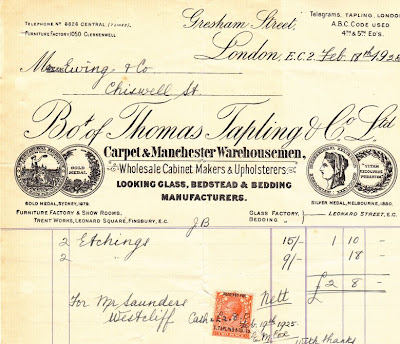 TELEPHONE Nº 8826 CENTRAL (7 LINES).
FURNITURE FACTORY 1050 CLERKENWELL
Gresham Street,
London, E.C.2. Feb. 18th 1925
Telegrams, TAPLING, LONDON
A.B.C. CODE USED
4TH & 5TH ED'S.
M Ewing & Co
Chiswell St.
Bot. of Thomas Tapling & Co Ltd
Carpet & Manchester Warehousemen,
Wholesale Cabinet Makers & Upholsterers
LOOKING GLASS, BEDSTEAD & BEDDING
MANUFACTURERS.
GOLD MEDAL
GOLD MEDAL, SYDNEY, 1879.
SILVER MEDAL, MELBOURNE, 1880.
FURNITURE FACTORY & SHOW ROOMS,
TRENT WORKS, LEONARD SQUARE, FINSBURY, E.C.
GLASS FACTORY,
BEDDING "
LEONARD STREET, E.C.
JB
2 Etchings 15/- 1 10 -
2 9/- 18 -
£ 2 8 -
Nett
For Mr Saunders
Westcliff
Cash £2.8.0
Feb. 19th 1925.
With thanks